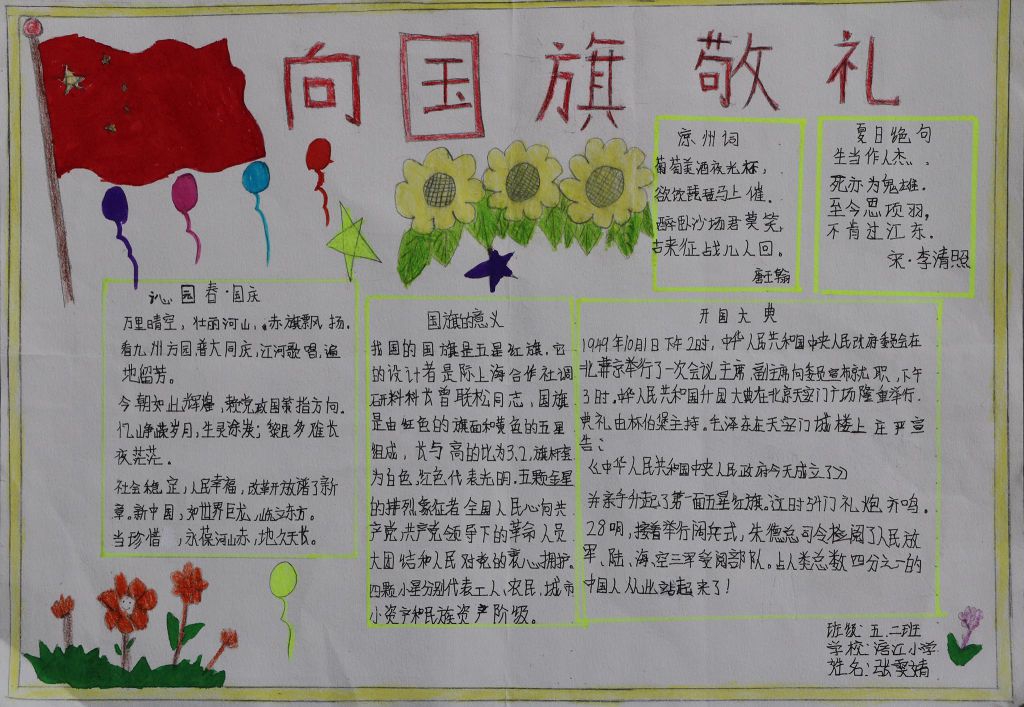 向国旗敬礼
凉州词
葡萄美酒夜光杯,
欲饮琵琶马上催.
醉卧沙场君莫笑,
古来征战几人回。
唐王翰
夏日绝句
生当作人杰、
死亦为鬼雄.
至今思项羽,
不肯过江东.
宋·李清照
沁园春·国庆
万里晴空,壮丽河山,赤旗飘扬.
看九州方园普大同庆,江河歌唱,遍
地留芳。
今朝如此辉煌,教党政国策指方向.
忆峥嵘岁月,生灵涂炭;黎民多难长
夜茫茫.
社会稳定,人民幸福,改革开放谱了新
章。新中国,如世界巨龙,屹立东方.
当珍惜,永葆河山赤,地久天长。
国旗的意义
我国的国旗是五星红旗.它
的设计者是际上海合作社调
研料科长曾联松同志,国旗
是由红色的旗面和黄色的五星
组成,长与高的比为3:2,旗杆套
为白色,红色代表光明.五颗金星
的排列象征者全国人民心向共
产党,共产党领导下的革命人员
大团结和人民对党的衷心拥护.
四颗小星分别代表工人、农民,城市
小资产和民族资产阶级。
开国大典
1949年10月1日下午2时,中华人民共和国中央人民政府委员会在
北京举行了一次会议.主席、副主席向委员宣布就职,下午
3时.中华人民共和国开国大典在北京天安门广场隆重举行.
典礼由林伯渠主持。毛泽东在天安门城楼上庄严宣
告:
《中华人民共和国中央人民政府今天成立了》
并亲手升起了第一面五星红旗。这时54门礼炮齐鸣.
28响,接着举行阅兵式,朱德总司令检阅了人民放
军、陆、海、空三军受阅部队。占人类总数四分之一的
中国人从此站起来了!
班级:五.二班
学校:涪江小学
姓名:张雯婧